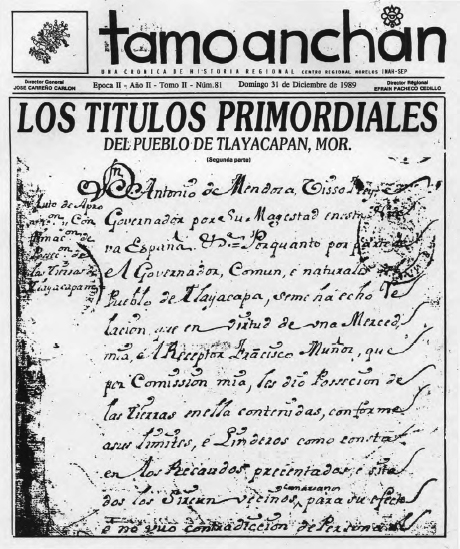 tamoanchan
UNA CRONICA DE HISTORIA REGIONAL CENTRO REGIONAL MORELOS INAH-SEP
Director General
JOSE CARREÑO CARLON
Epoca II - Año II - Tomo II - Núm.81
Domingo 31 de Diciembre de 1989
Director Regional
EFRAIN PACHECO CEDILLO
LOS TITULOS PRIMORDIALES
DEL PUEBLO DE TLAYACAPAN, MOR.
(Segunda parte)
Dn Antonio de Mendoza Visso Rey
Governador por Su Magestad en esta
va España. &= Porquanto por parte
el Governador, Comun, e naturales
Pueblo de Tlayacapa, seme ha echo Re
lacion, que en Virtud de una Merced
mia, é el Receptor Francisco Muñoz, que
por Comission mia, les dió Possecion de
las Tierras enella contenidas, conforme
asus limites, é Linderos como consta
en los Recaudos precentados, é sita
dos los Circun vecinos, para su efecto
é no vuo contradiccion de Persona
Auto de Apro
on, y Con
firmac.on de
Possec.on de
las Tierras de
Tlayacapan